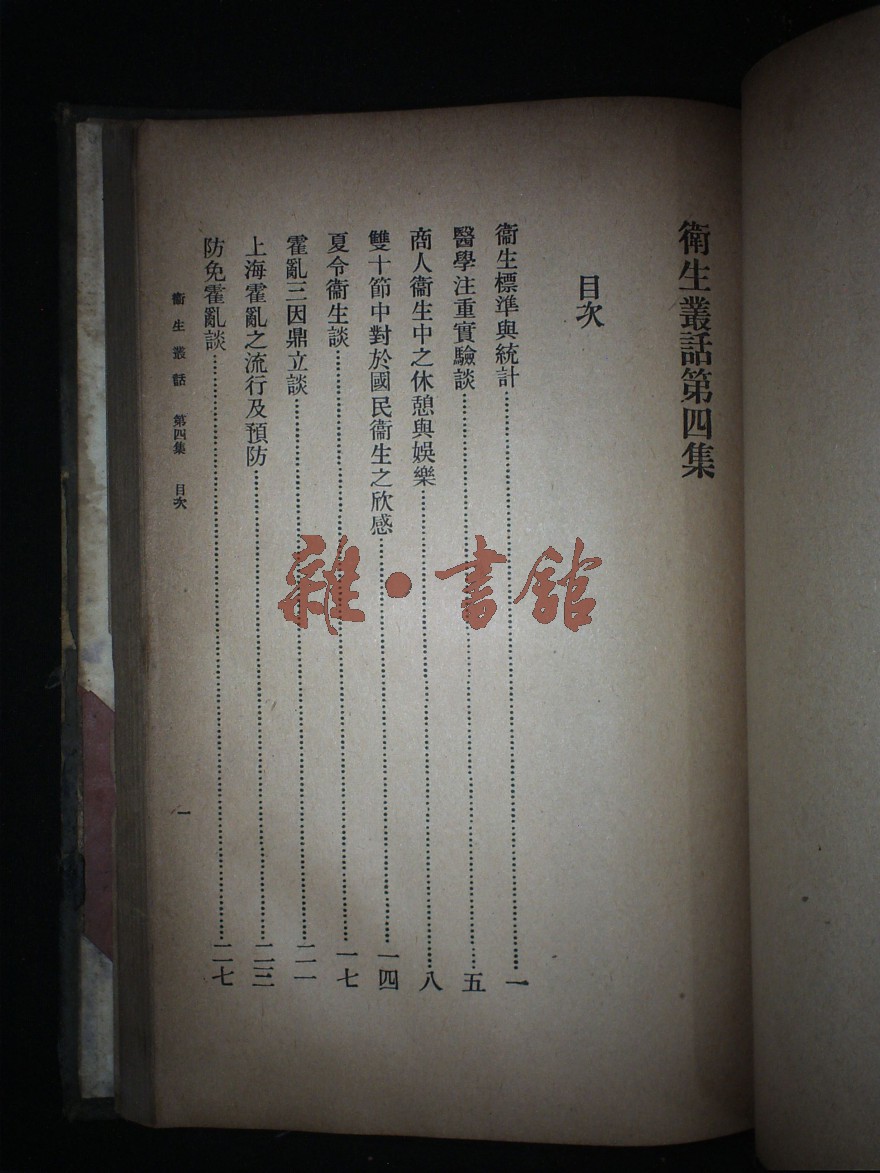 衞生叢話第四集
目次
衞生標準與統計……一
醫學注重實驗談……五
商人衞生中之休憩與娛樂……八
雙十節中對於國民衞生之欣感……一四
夏令衞生談……一七
霍亂三因鼎立談……二一
上海霍亂之流行及預防……二三
防免霍亂談……二七
衞生叢話 第四集 目次
一
雜·書館